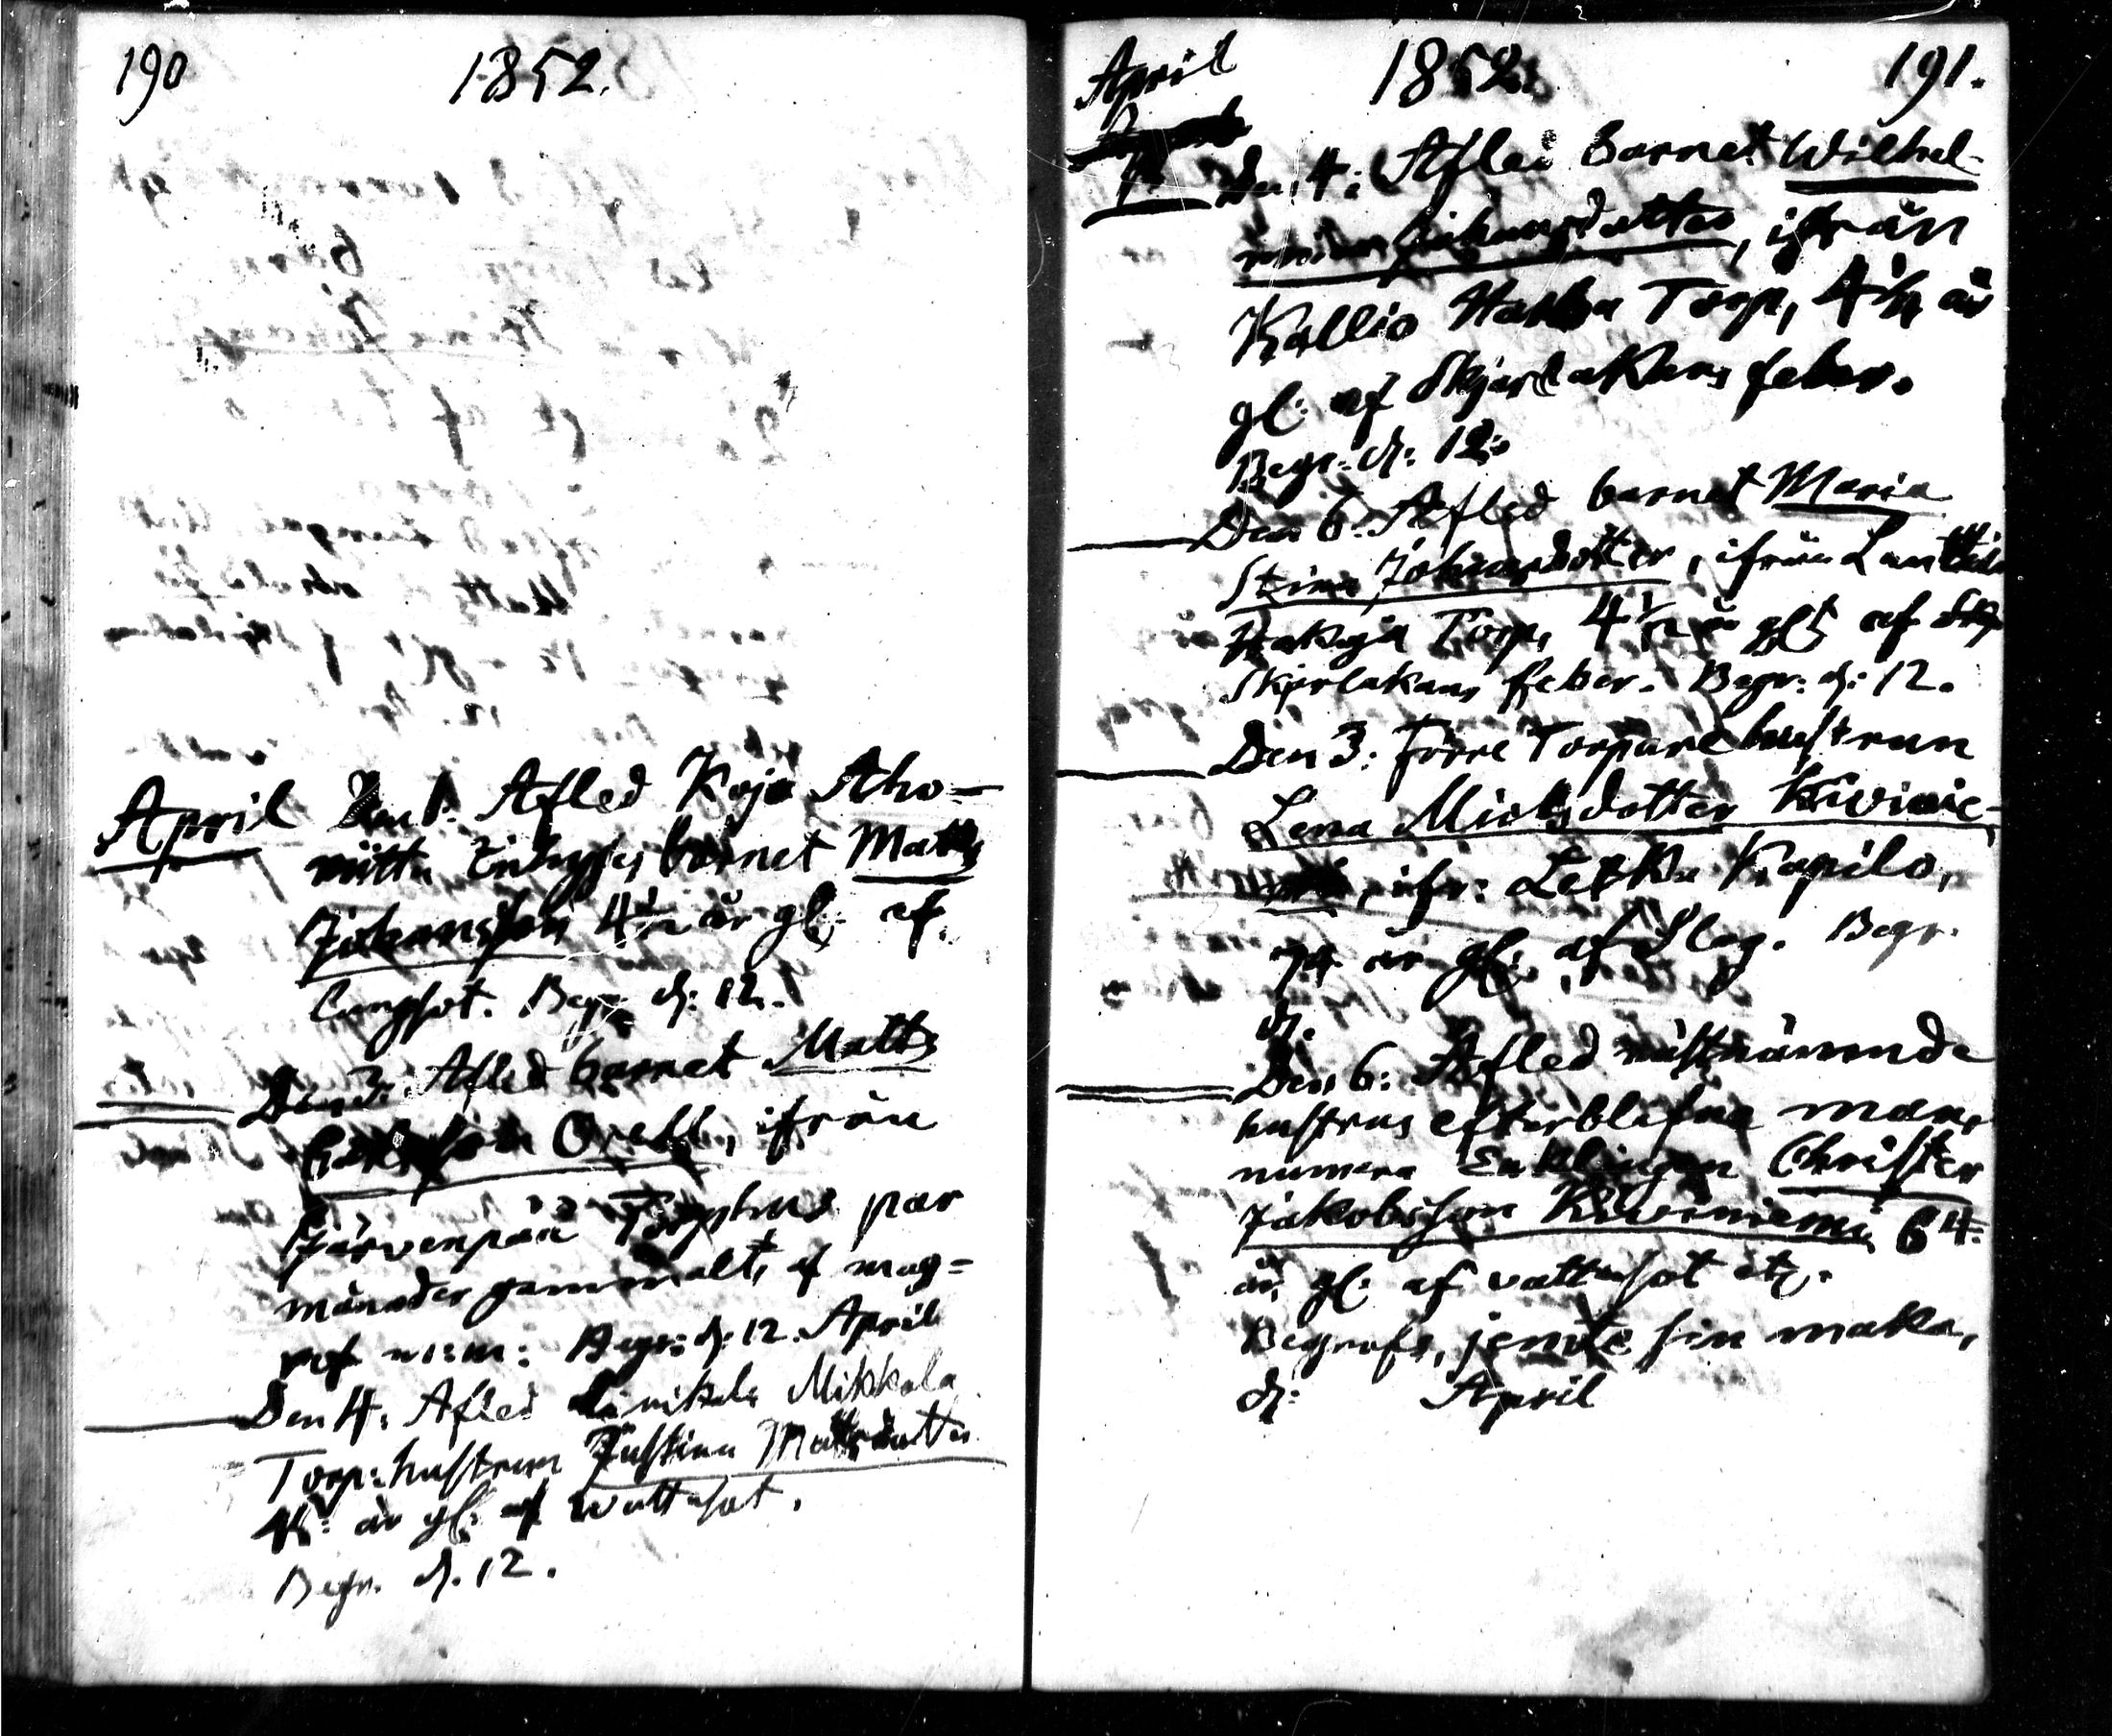 190
1852.
April Den 1. Afled Kojo Aho=
mitta Inhyses barnet Matts
Johansson 4½ år gl: af
lungsot. Begr. d: 12.
Den 3. Afled barnet Matts
Orell, ifrån
Järvenpää Torp par
månader gammalt, af mag=
ref m:m: Begr: d: 12. April
Den 4. Afled Mikkola
Torp: hustrun Justina Mattsdotter
år gl: af wattusot.
Begr. d. 12.
April 1852. 191.
Den 4: Afled barnet Wilhel-
mina Johansdotter, ifrån
Kallio Torp, 4½ år
gl: af Skjarlakans feber.
Begr. d: 12.
Den 6. Afled barnet Maria
Stina Johansdotter, ifrån
Torp, 4½ år glt af
Skjerlakans feber. Begr: d: 12.
Den 3: Förre Torpare hustrun
Lena Micksdotter Kivinie-
mi, ifr: Kapilo,
74 år gl: af Slag. Begr.
d.
Den 6: Afled nästnämnde
hustrus efterblifna man,
numera Enklingen Christer
Jakobsson Kiviniemi 64
år gl: af vattusot etc.
Begrafs, jemte sin maka,
d: April